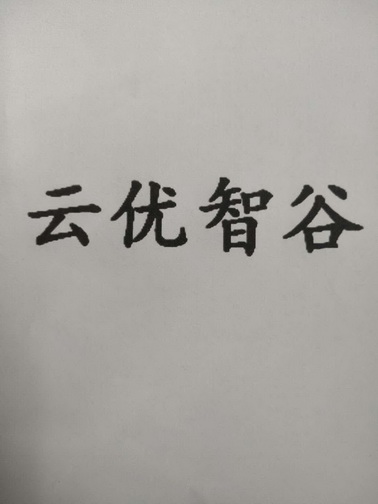 云优智谷